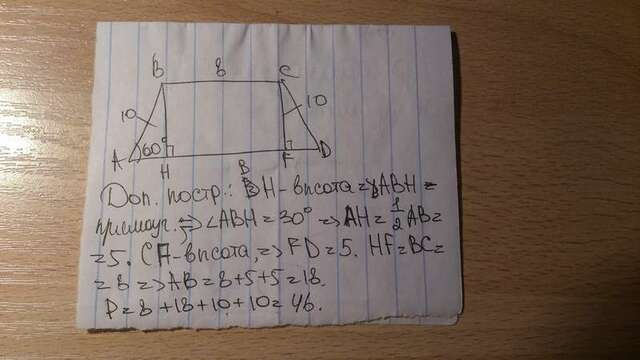 B 8 C
10 10
A 60° H F D
Доп. постр.: BH - высота => ABH =
прямоуг. => ∠ABH = 30° => AH = 1/2 AB =
= 5. CF - высота, => FD = 5. HF = BC =
= 8 => AB = 8 + 5 + 5 = 18.
P = 8 + 18 + 10 + 10 = 46.